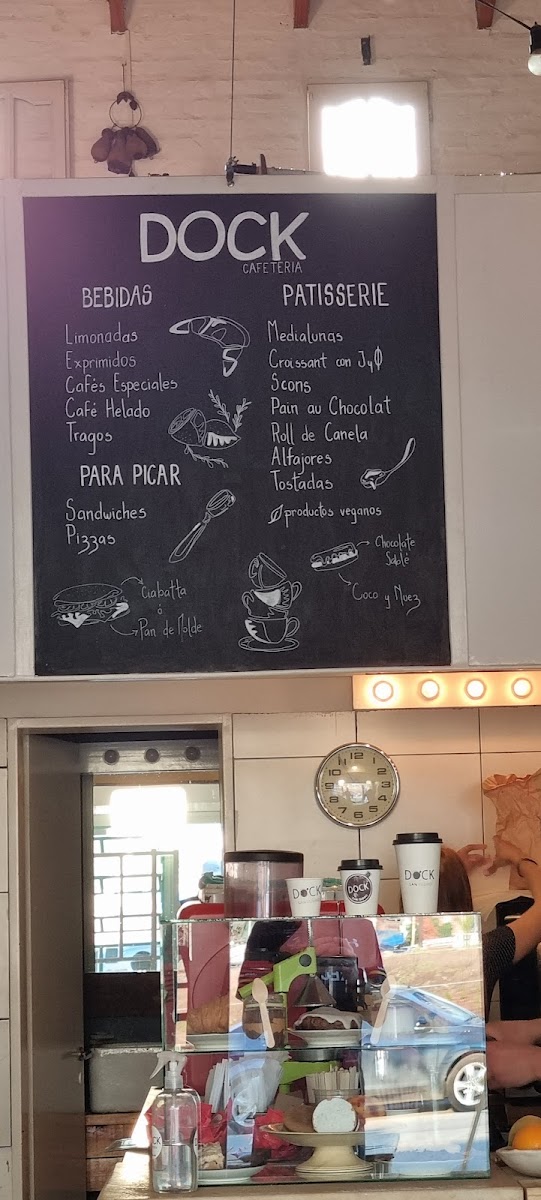 DOCK
CAFETERIA
BEBIDAS
Limonadas
Exprimidos
Cafés Especiales
Café Helado
Tragos
PARA PICAR
Sandwiches
Pizzas
Ciabatta
ó
Pan de Molde
PATISSERIE
Medialunas
Croissant con JyQ
Scons
Pain au Chocolat
Roll de Canela
Alfajores
Tostadas
productos veganos
Chocolate
Sablé
Coco y Nuez
12
1
2
3
4
5
6
7
8
9
10
11
DOCK
DOCK
DOCK